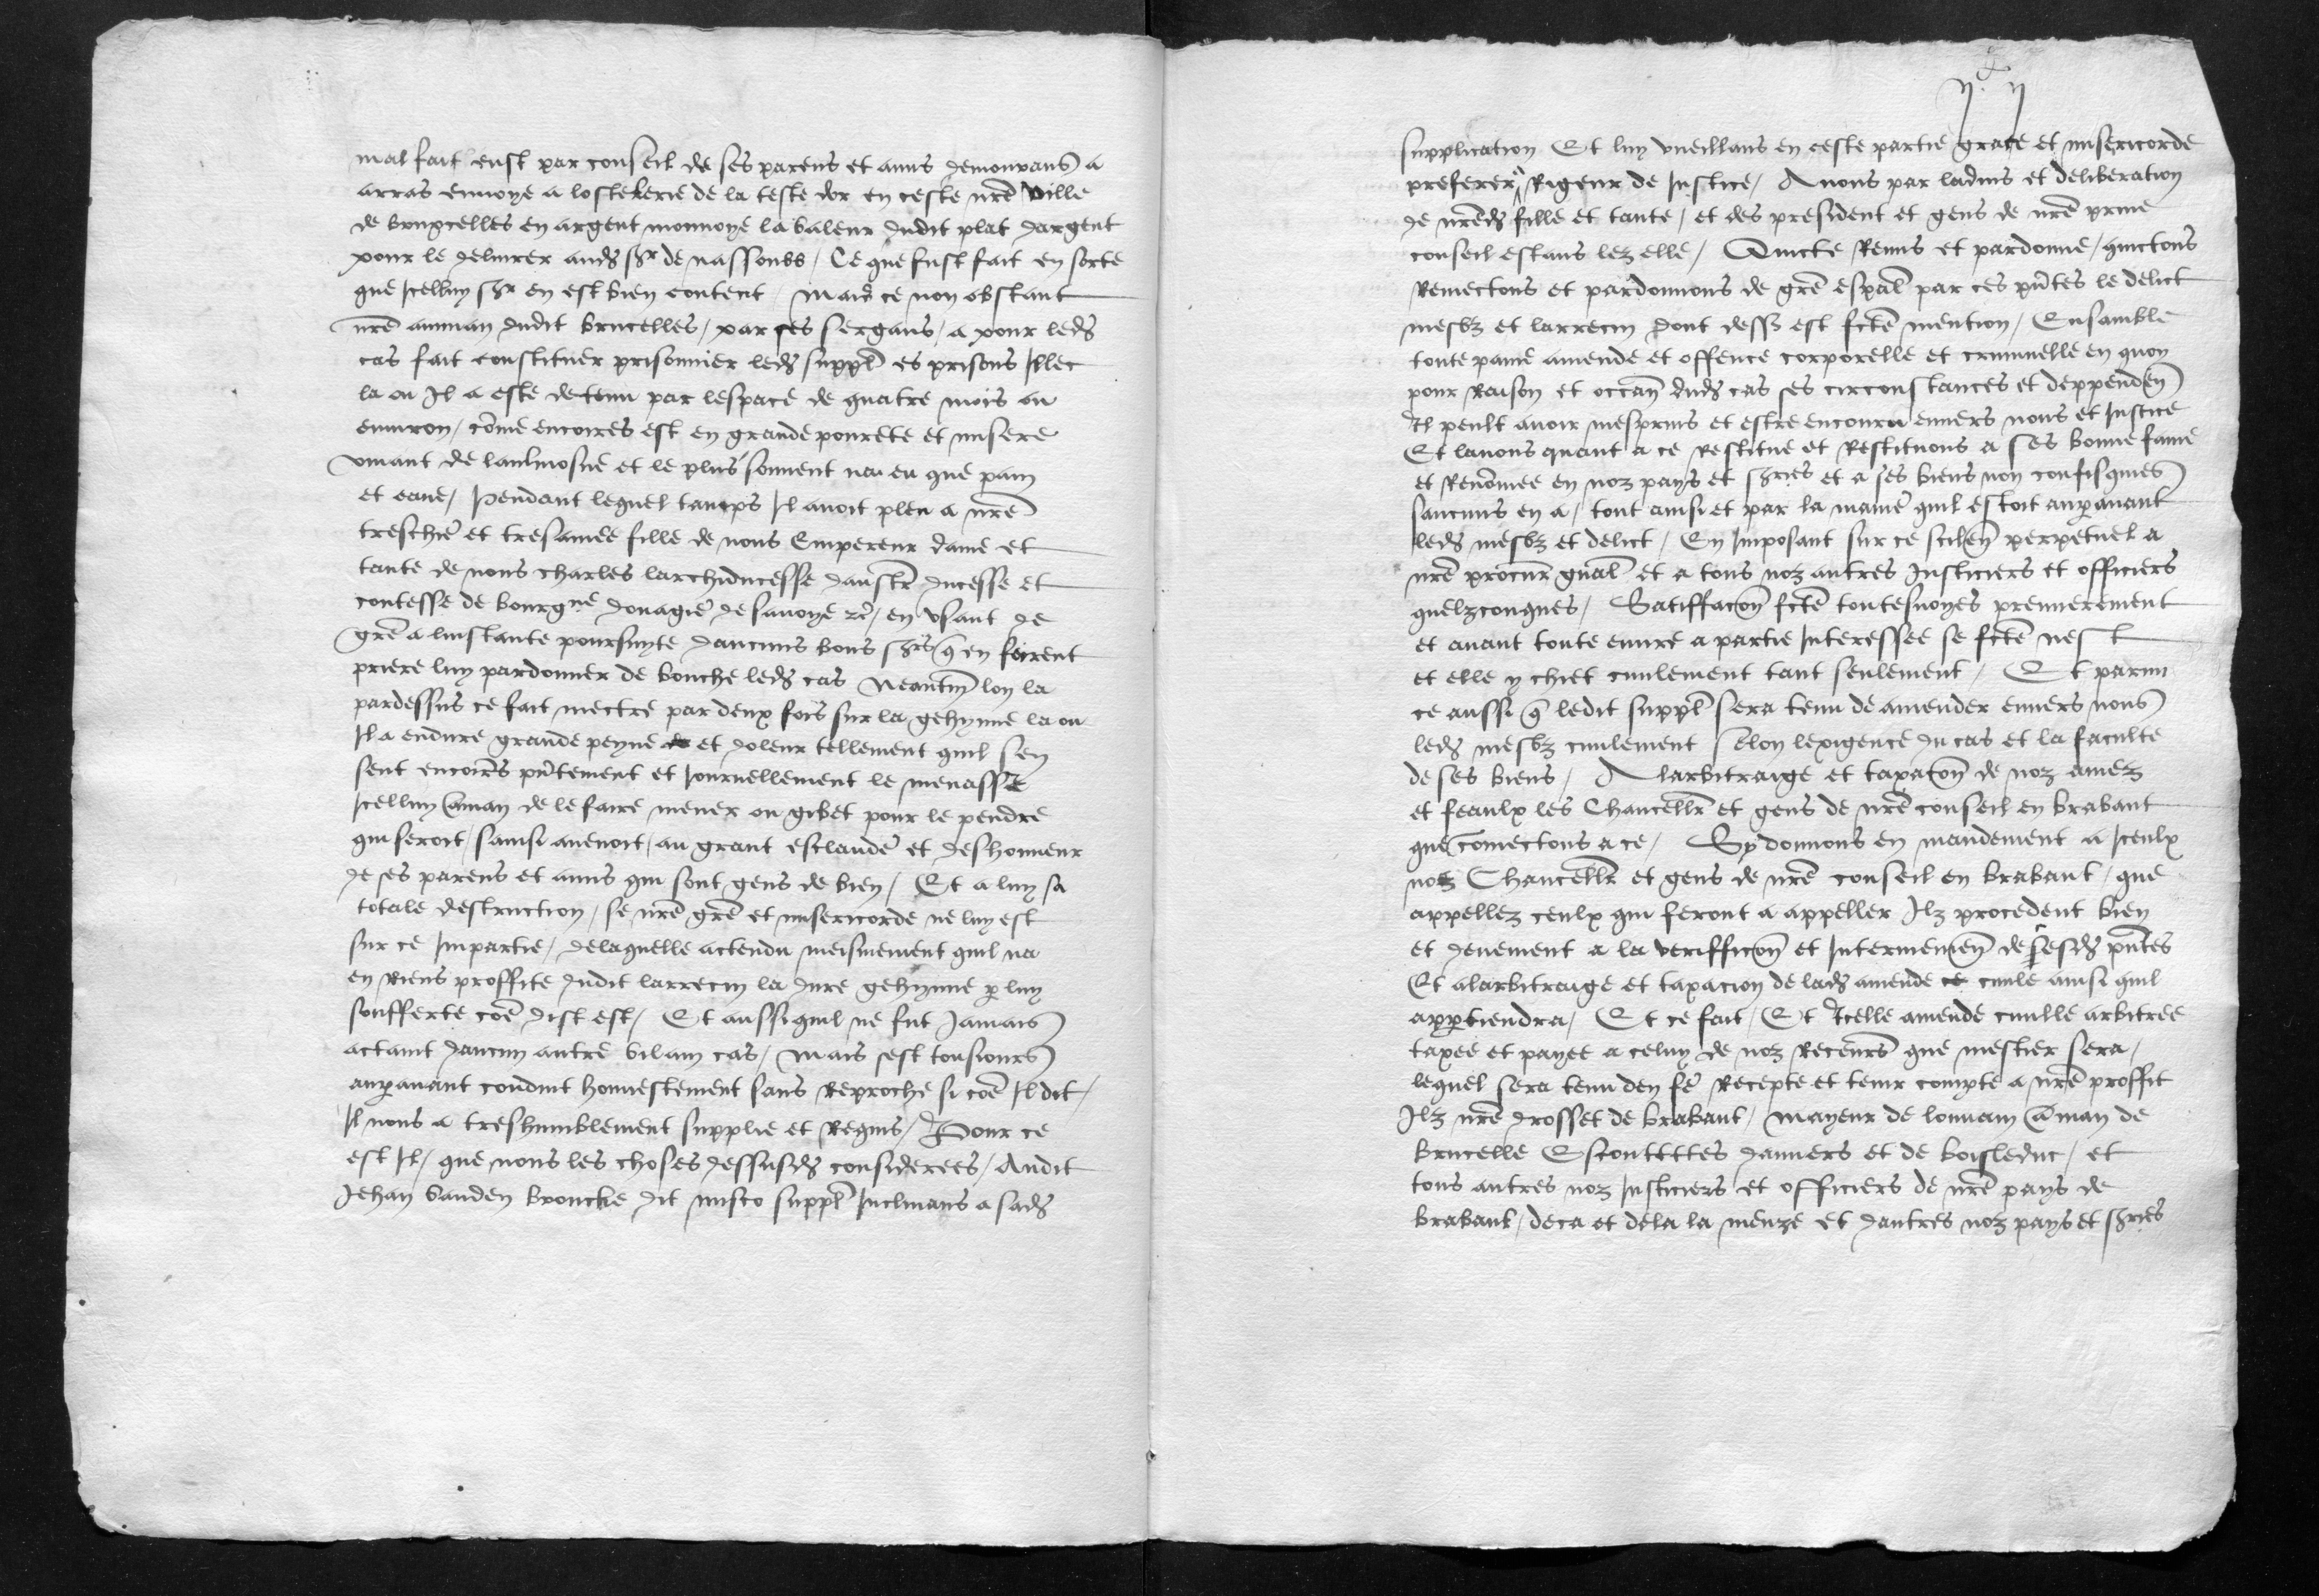 mal fait eust par conseil de ses parens et amis demourans a
arras enuoye a lostelerie de la teste dor en ceste nre ville
de bruxcelles en argent monnoye la valeur dudit plat dargent
pour le deliurer auds sr de nassouw / Ce que fust fait en sorte
que Icelluy sr en est bien content / Mais ce non obstant
nre amman dudit brucelles / par ses sergans / a pour leds
cas fait constituer prisonnier leds suppl es prisons Illec
la ou Il a este detenu par lespace de quatre mois ou
enuiron / come encoires est en grande pourete et misere
viuant de laulmosne et le plus souuent na eu que pain
et eaue / Pendant lequel tamps Il auoit pleu a nre
treschie et tresamee fille de nous Empereur dame et
tante de nous charles larchiducesse daustr ducesse et
contesse de bourgne douagie de sauoye zc / en vsant de
gre a linstante poursuyte daucuns bons srs q en feirent
priere luy pardonner de bouche leds cas Neantm lon la
pardessus ce fait mectre par deux fois sur la gehynne la ou
Il a endure grande peyne et doleur tellement quil sen
sent encoires pntement et Journellement le menasse
Icelluy aman de le faire mener ou gibet pour le pendre
qui seroit / sainsi auenoit / au grant esclande et deshonneur
de ses parens et amis qui sont gens de bien / Et a luy sa
totale destruction / se nre gre et misericorde ne luy est
sur ce Impartie / delaquelle actendu meismement quil na
en Riens proffite dudit larrecin la dure gehynne p luy
soufferte coe dist est / Et aussi quil ne fut Jamais
actaint daucun autre vilain cas / Mais sest tousiours
aupauant conduit honnestement sans Reproche si coe Il dit /
Il nous a treshumblement supplie et Requis / Pour ce
est Il / que nous les choses dessusds considerees / Audit
Jehan vanden broucke dit misco suppl Inclinans a sads
supplication Et luy vueillans en ceste partie grace et misericorde
preferer a Rigeur de Justice / Auons par laduis et deliberation
de nreds fille et tante / et des president et gens de nre priue
conseil estans lez elle / Quicte Remis et pardonne / quictons
Remectons et pardonnons de gre espal par ces pntes le delict
mesvz et larrecin dont dess est fcte mention / Ensamble
toute paine amende et offence corporelle et criminelle en quoy
pour Raison et occan duds cas ses circonstances et deppenden
Il peult auoir mesprins et estre encouru enuers nous et Justice
Et lauons quant a ce Restitue et Restituons a ses bonne fame
et Renomee en noz pays et sries et a ses biens non confisquies
saucuns en a / tout ainsi et par la manie quil estoit aupauant
leds mesvz et delict / En Imposant sur ce scilen perpetuel a
nre procur gnal et a tous noz autres Justiciers et officiers
quelzconques / Satiffacon fcte toutesuoyes premierement
et auant toute euure a partie Interessee se fcte nest
et elle y chiet ciuilement tant seulement / Et parmi
ce aussi q ledit suppl sera tenu de amender enuers nous
leds mesvz ciuilement selon lexigence du cas et la faculte
de ses biens / A larbitraige et taxaton de noz amez
et feaulx les Chancellr et gens de nre conseil en brabant
que comectons a ce / Sy donnons en mandement a Iceulx
noz Chancellr et gens de nre conseil en brabant / que
appellez ceulx qui feront a appeller Ilz procedent bien
et deuement a la verifficon et Interinemen de sesds pntes
Et alarbitraige et taxacion de lads amende ciuile ainsi quil
appertiendra / Et ce fait / Et Icelle amende ciuille arbitree
taxee et payee a celuy de noz Receurs que mestier sera /
lequel sera tenu den fe Recepte et tenir compte a nre proffit
Ilz nre drosset de brabant / mayeur de louuain aman de
brucelle Escoutettes danuers et de boisleduc / et
tous autres noz Justiciers et officiers de nre pays de
brabant / deca et dela la meuze et dautres noz pays et sries